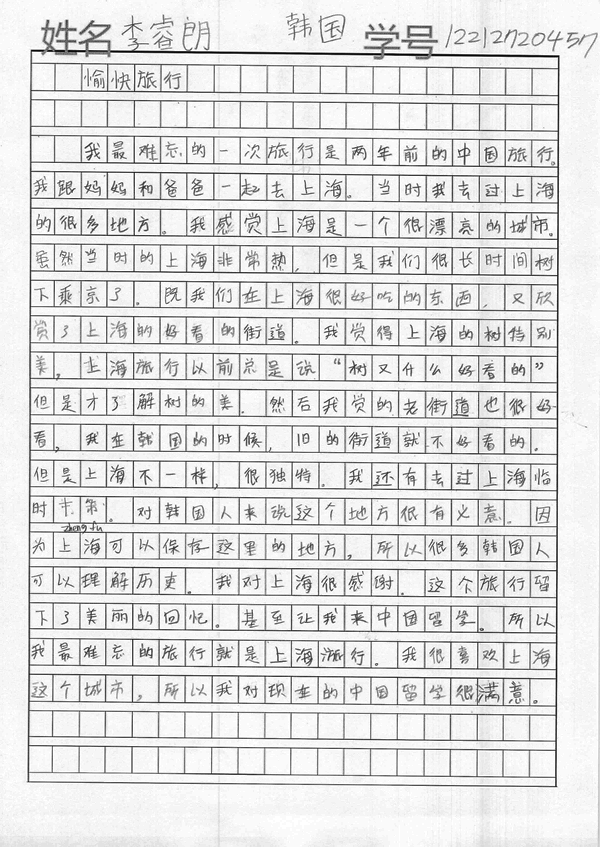 姓名 李睿朗 韩国 学号 12212720457
愉快旅行
我最难忘的一次旅行是两年前的中国旅行。
我跟妈妈和爸爸一起去上海。当时我去过上海
的很多地方。我感觉上海是一个很漂亮的城市。
虽然当时的上海非常热，但是我们很长时间树
下乘京了。既我们在上海很好吃的东西，又欣
赏了上海的好看的街道。我觉得上海的树特别
美，上海旅行以前总是说“树又什么好看的”
但是才了解树的美。然后我觉的老街道也很好
看，我在韩国的时候，旧的街道就不好看的。
但是上海不一样，很独特。我还有去过上海临
时。对韩国人来说这个地方很有义意。因
zheng fu
为上海可以保存这里的地方，所以很多韩国人
可以理解历吏。我对上海很感谢。这个旅行留
下了美丽的回忆。甚至让我来中国留学。所以
我最难忘的旅行就是上海旅行。我很喜欢上海
这个城市，所以我对现在的中国留学很满意。